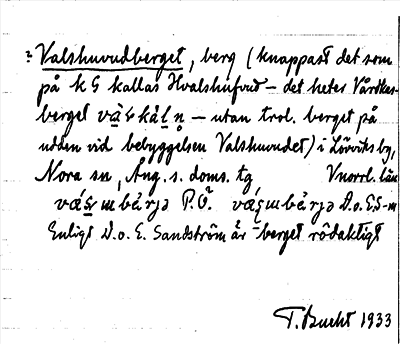 ? Valshuvudberget, berg (knappast det som
på k G kallas Hvalshufvud – det heter Vårdkas-
berget – utan trol. berget på
udden vid bebyggelsen Valshuvudet) i Lövviks by,
Nora sn, Ång. s. doms. tg Vnorrl. län
P.Ö. D.o.E.S-m
Enligt D.o.E. Sandström är -berget rödaktigt
T. Bucht 1933